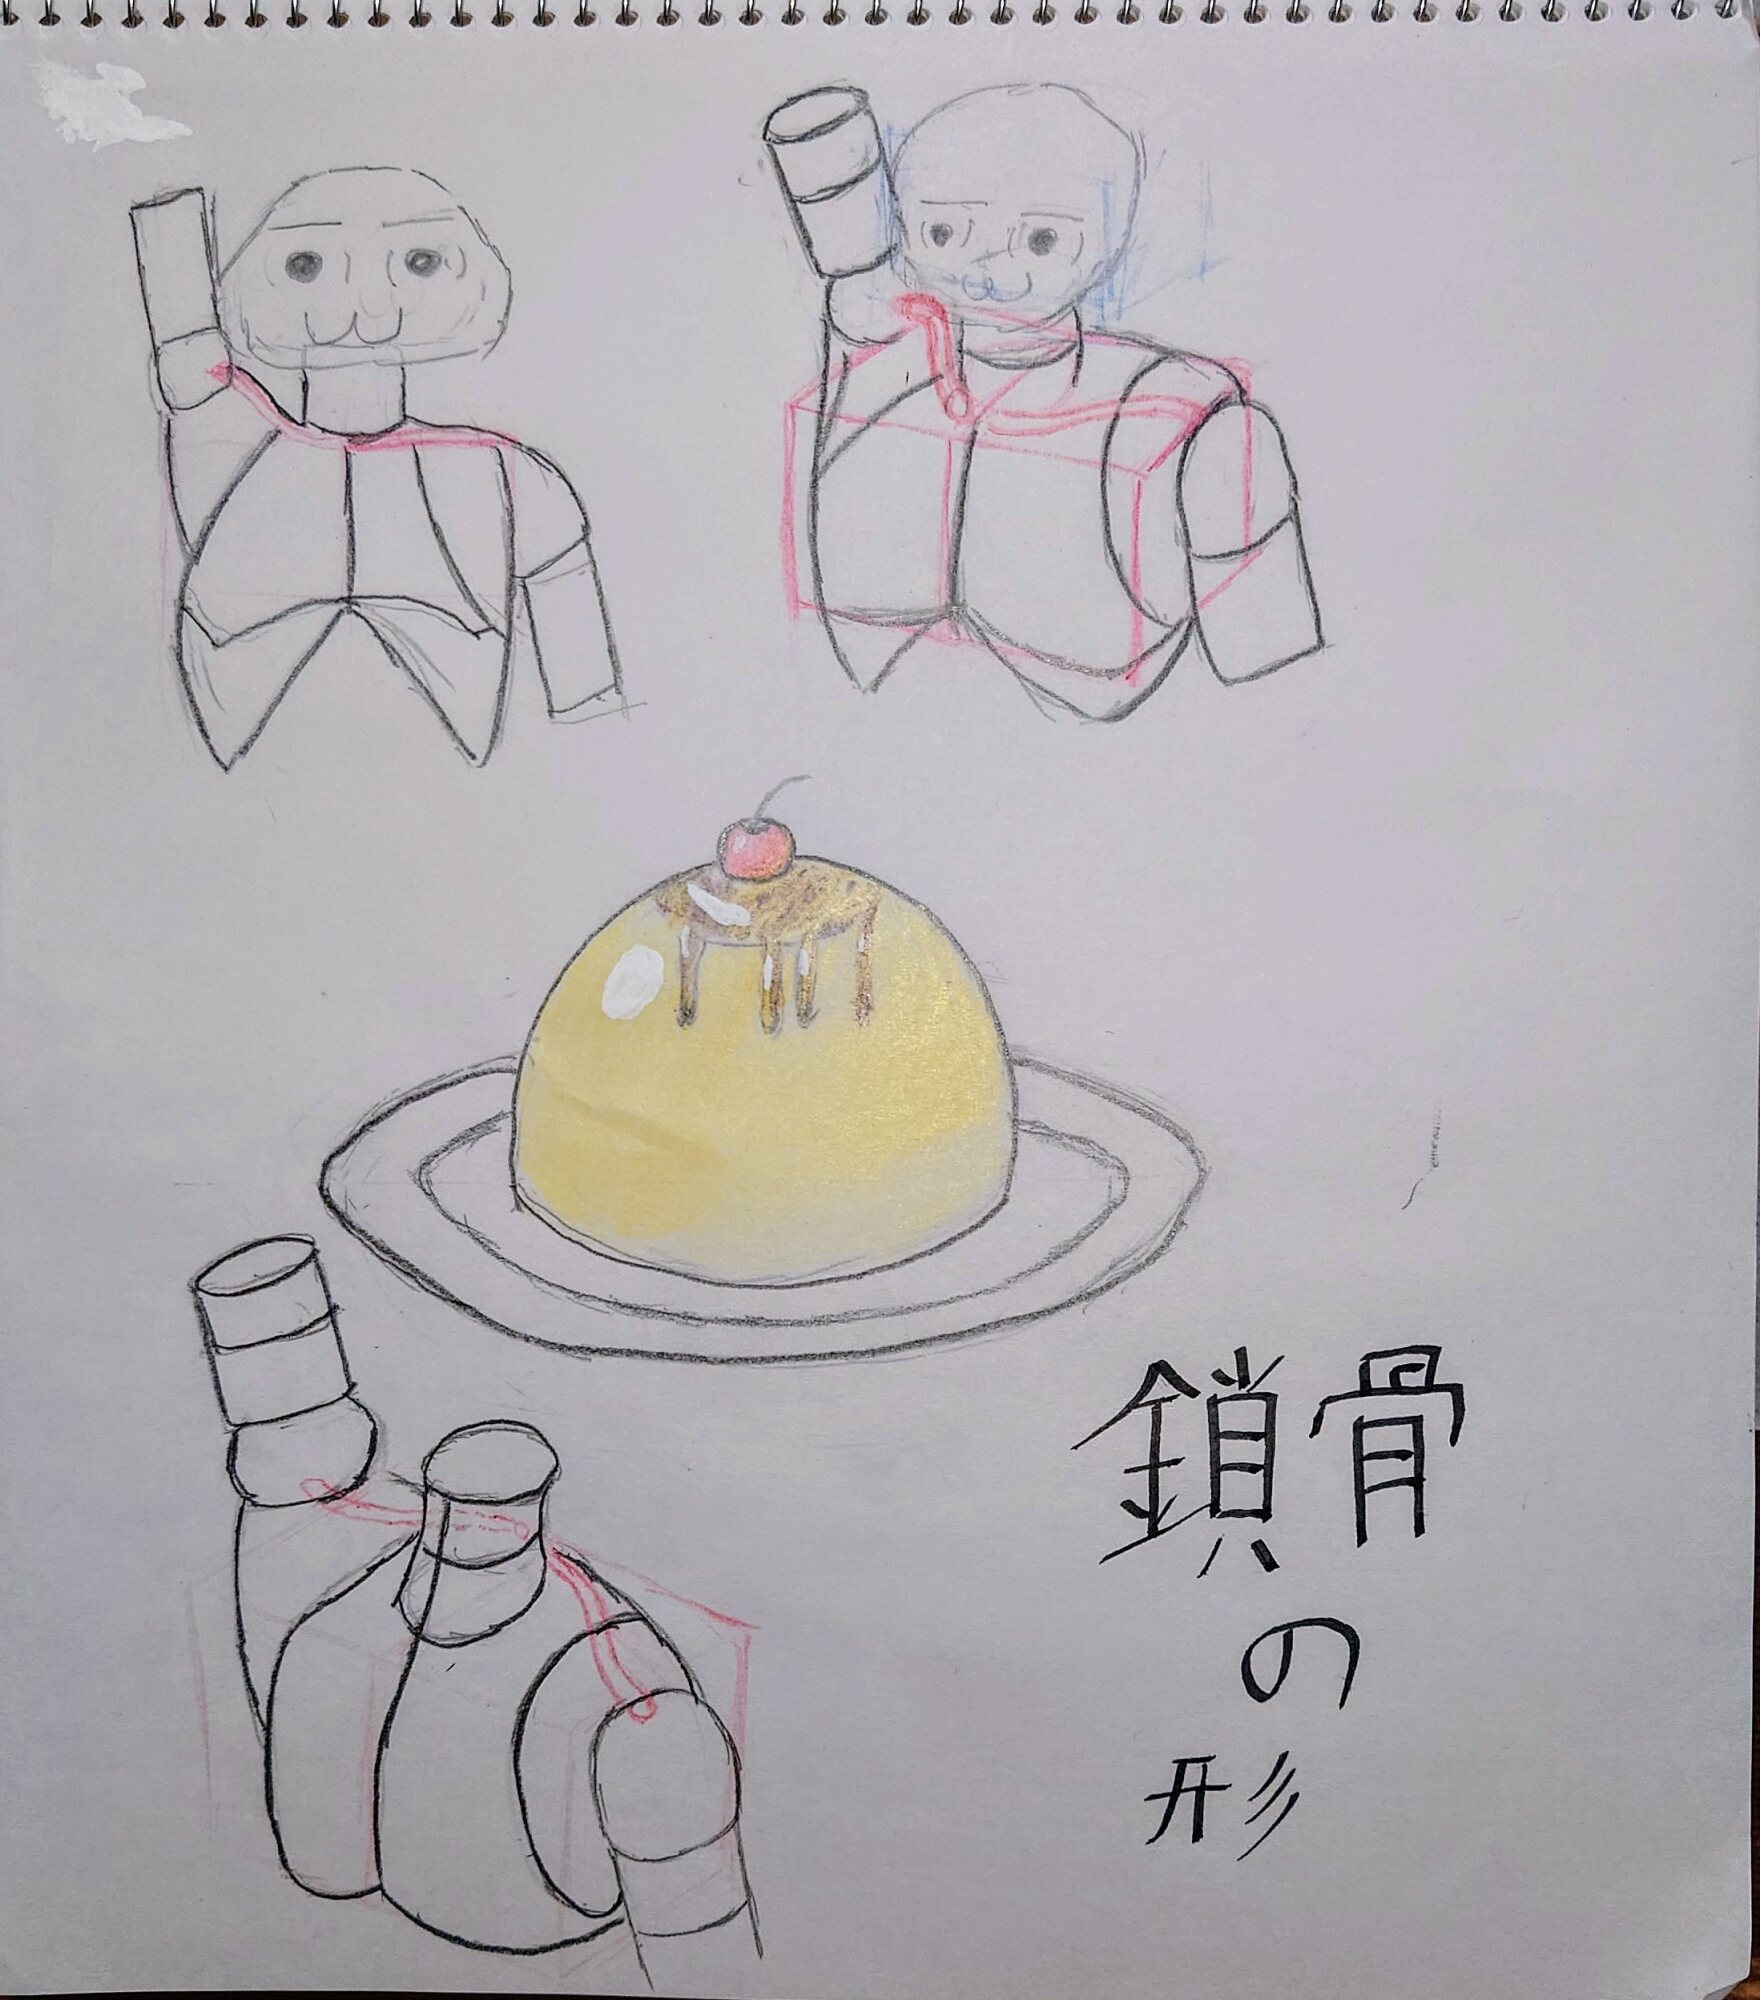 鎖骨
の
形